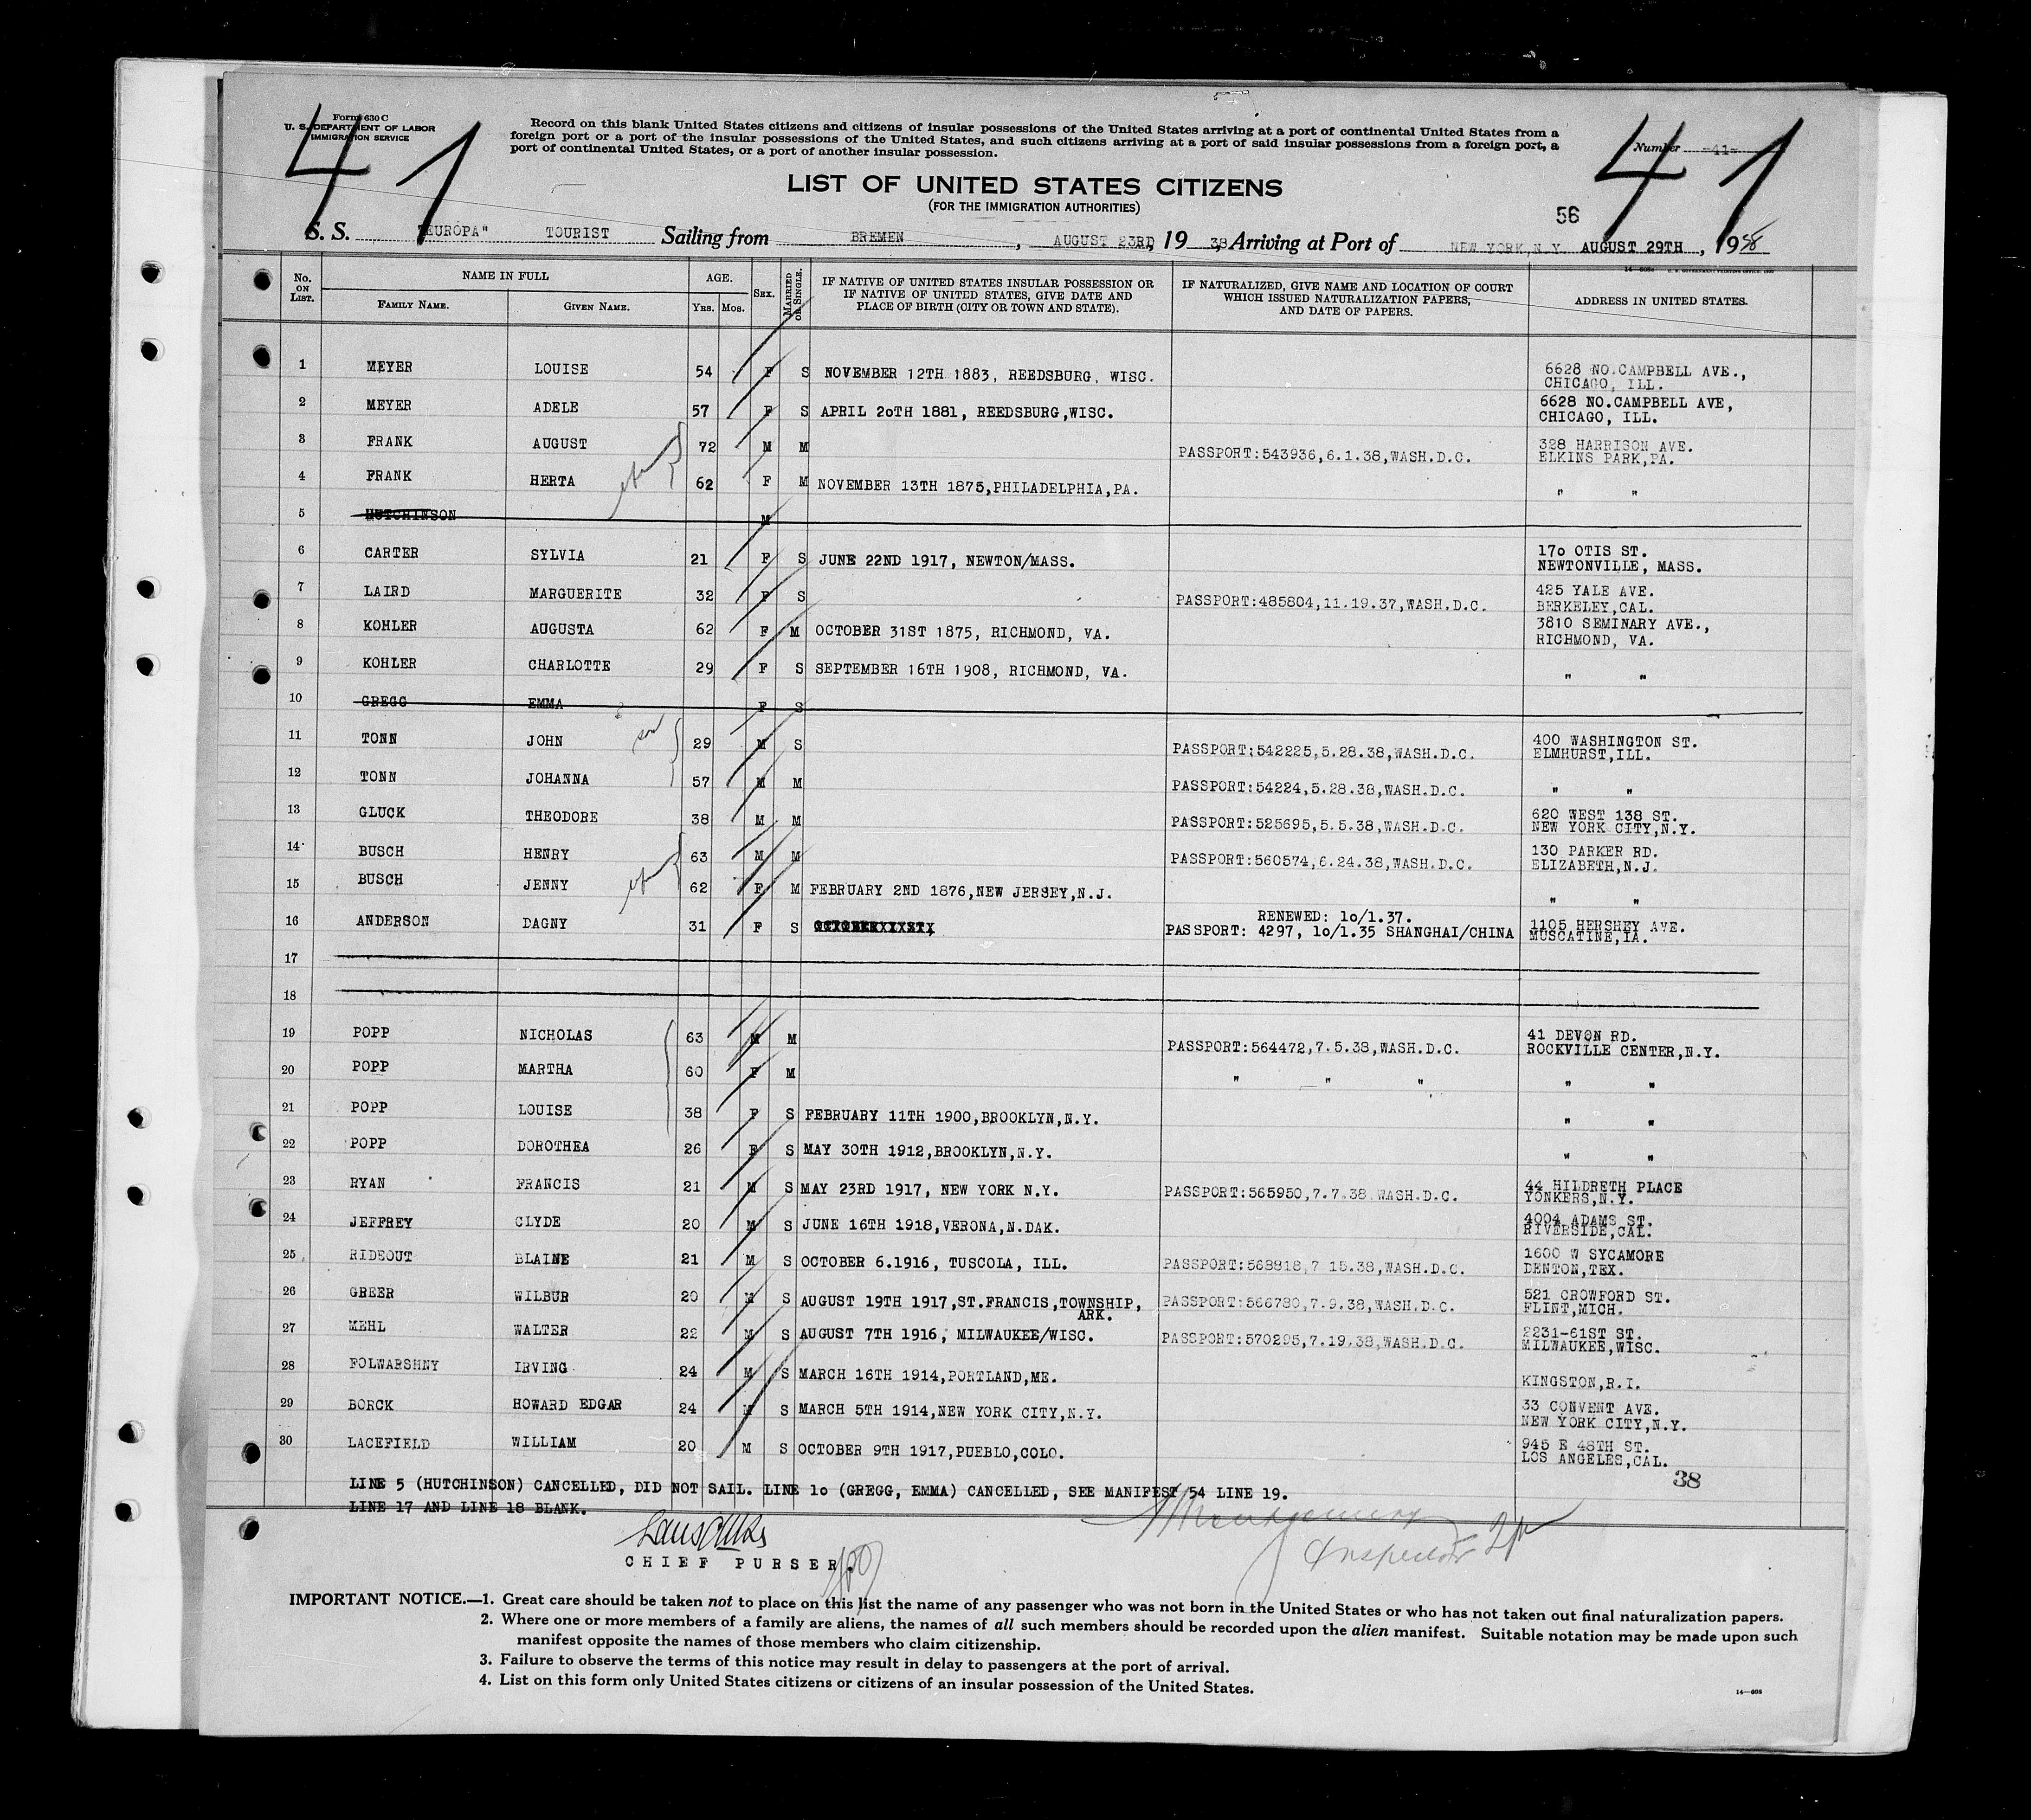 Form 630 C
U. S. DEPARTMENT OF LABOR
IMMIGRATION SERVICE
41
Record on this blank United States citizens and citizens of insular possessions of the United States arriving at a port of continental United States from a
foreign port or a port of the insular possessions of the United States, and such citizens arriving at a port of said insular possessions from a foreign port, a
port of continental United States, or a port of another insular possession.
Number -41-
41
LIST OF UNITED STATES CITIZENS
(FOR THE IMMIGRATION AUTHORITIES)
56
S. S. "EUROPA" TOURIST Sailing from BREMEN, AUGUST 23RD, 19 38, Arriving at Port of NEW YORK, N.Y. AUGUST 29TH, 1938
No. ON LIST. NAME IN FULL FAMILY NAME. GIVEN NAME. AGE. YRS. MOS. SEX. MARRIED OR SINGLE. IF NATIVE OF UNITED STATES INSULAR POSSESSION OR IF NATIVE OF UNITED STATES, GIVE DATE AND PLACE OF BIRTH (CITY OR TOWN AND STATE). IF NATURALIZED, GIVE NAME AND LOCATION OF COURT WHICH ISSUED NATURALIZATION PAPERS, AND DATE OF PAPERS. ADDRESS IN UNITED STATES.
1 MEYER LOUISE 54 F S NOVEMBER 12TH 1883, REEDSBURG, WISC. 6628 NO.CAMPBELL AVE.,
CHICAGO, ILL.
2 MEYER ADELE 57 F S APRIL 20TH 1881, REEDSBURG,WISC. 6628 NO.CAMPBELL AVE,
CHICAGO, ILL.
3 FRANK AUGUST 72 M M PASSPORT:543936,6.1.38,WASH.D.C. 328 HARRISON AVE.
ELKINS PARK,PA.
4 FRANK HERTA 62 F M NOVEMBER 13TH 1875,PHILADELPHIA,PA. " "
5 HUTCHINSON M
6 CARTER SYLVIA 21 F S JUNE 22ND 1917, NEWTON/MASS. 170 OTIS ST.
NEWTONVILLE, MASS.
7 LAIRD MARGUERITE 32 F S PASSPORT:485804,11.19.37,WASH.D.C. 425 YALE AVE.
BERKELEY,CAL.
8 KOHLER AUGUSTA 62 F M OCTOBER 31ST 1875, RICHMOND, VA. 3810 SEMINARY AVE.,
RICHMOND, VA.
9 KOHLER CHARLOTTE 29 F S SEPTEMBER 16TH 1908, RICHMOND, VA. " "
10 GREGG EMMA F S
11 TONN JOHN son 29 M S PASSPORT:542225,5.28.38,WASH.D.C. 400 WASHINGTON ST.
ELMHURST,ILL.
12 TONN JOHANNA 57 M M PASSPORT:54224,5.28.38,WASH.D.C. " "
13 GLUCK THEODORE 38 M M PASSPORT:525695,5.5.38,WASH.D.C. 620 WEST 138 ST.
NEW YORK CITY,N.Y.
14 BUSCH HENRY 63 M M PASSPORT:560574,6.24.38,WASH.D.C. 130 PARKER RD.
ELIZABETH,N.J.
15 BUSCH JENNY 62 F M FEBRUARY 2ND 1876,NEW JERSEY,N.J. " "
16 ANDERSON DAGNY 31 F S RENEWED: 10/1.37.
PASSPORT: 4297, 10/1.35 SHANGHAI/CHINA 1105 HERSHEY AVE.
MUSCATINE,IA.
17
18
19 POPP NICHOLAS 63 M M PASSPORT:564472,7.5.38,WASH.D.C. 41 DEVON RD.
ROCKVILLE CENTER,N.Y.
20 POPP MARTHA 60 F M " " " " "
21 POPP LOUISE 38 F S FEBRUARY 11TH 1900,BROOKLYN,N.Y. " "
22 POPP DOROTHEA 26 F S MAY 30TH 1912,BROOKLYN,N.Y. " "
23 RYAN FRANCIS 21 M S MAY 23RD 1917, NEW YORK N.Y. PASSPORT:565950,7.7.38,WASH.D.C. 44 HILDRETH PLACE
YONKERS,N.Y.
24 JEFFREY CLYDE 20 M S JUNE 16TH 1918,VERONA,N.DAK. 4094 ADAMS ST.
RIVERSIDE,CAL.
25 RIDEOUT BLAINE 21 M S OCTOBER 6.1916, TUSCOLA, ILL. PASSPORT:568818,7 15.38,WASH.D.C. 1600 W SYCAMORE
DENTON,TEX.
26 GREER WILBUR 20 M S AUGUST 19TH 1917,ST.FRANCIS,TOWNSHIP,
ARK. PASSPORT:566780,7.9.38,WASH.D.C. 521 CROWFORD ST.
FLINT,MICH.
27 MEHL WALTER 22 M S AUGUST 7TH 1916, MILWAUKEE/WISC. PASSPORT:570295,7.19.38,WASH.D.C. 2231-61ST ST.
MILWAUKEE,WISC.
28 FOLWARSHNY IRVING 24 M S MARCH 16TH 1914,PORTLAND,ME. KINGSTON,R.I.
29 BORCK HOWARD EDGAR 24 M S MARCH 5TH 1914,NEW YORK CITY,N.Y. 33 CONVENT AVE.
NEW YORK CITY,N.Y.
30 LACEFIELD WILLIAM 20 M S OCTOBER 9TH 1917,PUEBLO,COLO. 945 E 48TH ST.
LOS ANGELES,CAL.
38
LINE 5 (HUTCHINSON) CANCELLED, DID NOT SAIL. LINE 10 (GREGG, EMMA) CANCELLED, SEE MANIFEST 54 LINE 19.
LINE 17 AND LINE 18 BLANK.
Montgomery
Inspector
CHIEF PURSER.
IMPORTANT NOTICE.—1. Great care should be taken not to place on this list the name of any passenger who was not born in the United States or who has not taken out final naturalization papers.
2. Where one or more members of a family are aliens, the names of all such members should be recorded upon the alien manifest. Suitable notation may be made upon such
manifest opposite the names of those members who claim citizenship.
3. Failure to observe the terms of this notice may result in delay to passengers at the port of arrival.
4. List on this form only United States citizens or citizens of an insular possession of the United States.
14—608